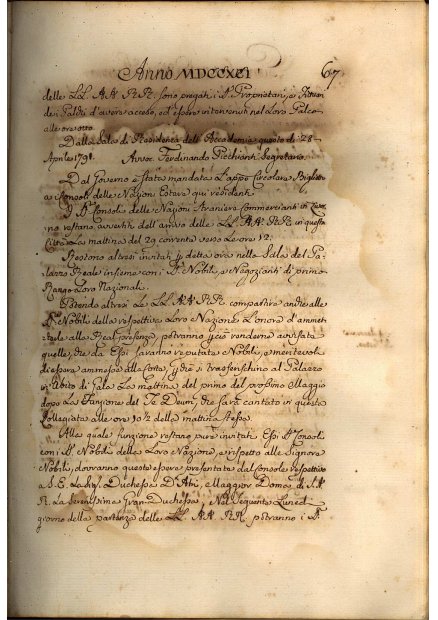 Anno MDCCXCI 67
delle LL. AA. RR. sono pregati i Sri. Proprietari, e
dei Palchi d'avere acceso, ed essere intervenuti nel Loro Palco
alle ore otto.
Dalla Sala di Residenza dell'Accademia questo dì 28
Aprile 1791. Avvoc. Ferdinando Segretario.
Dal Governo è stata mandata l'appo Circolare Biglietto
a Consoli delle Nazioni Estere qui residenti.
I Sri. Consoli delle Nazioni Straniere Commercianti in
no restano avvertiti dell'arrivo delle LL. AA. RR. in questa
Città La mattina del 29 corrente verso le ore 12.
Restono altresì invitati a detta ora nella Sala del Pa-
lazzo Reale insieme con i Sri. Nobili, e Negozianti di primo
Rango Loro Nazionali.
Potendo altresì Le LL. AA. RR. compartire anche alle
Sre. Nobili della respettiva Loro Nazione L'onore d'ammet-
terle alla Real presenza, potranno perciò renderne avvisate
quelle, che da Essi saranno reputate Nobili, e meritevoli
d'essere ammesse alla Corte, perchè si trasferischino al Palazzo
in Abito di Gala La mattina del primo del prossimo Maggio
dopo La Funzione del Te Deum, che sarà cantato in questa
Collegiata alle ore 10½ della mattina stessa.
Alla quale funzione restano pure invitati Essi Sri. Consoli
con i Sri. Nobili della Loro Nazione, e rispetto alle Signore
Nobili, dovranno queste essere presentate dal Console respettivo
a S. E. La Sig. Duchessa D'Atri, e Maggior Doma di S. A.
R. La Serenissima Gran Duchessa, Nel seguente Lunedì
giorno della partenza delle LL. AA. RR. potranno i Sri